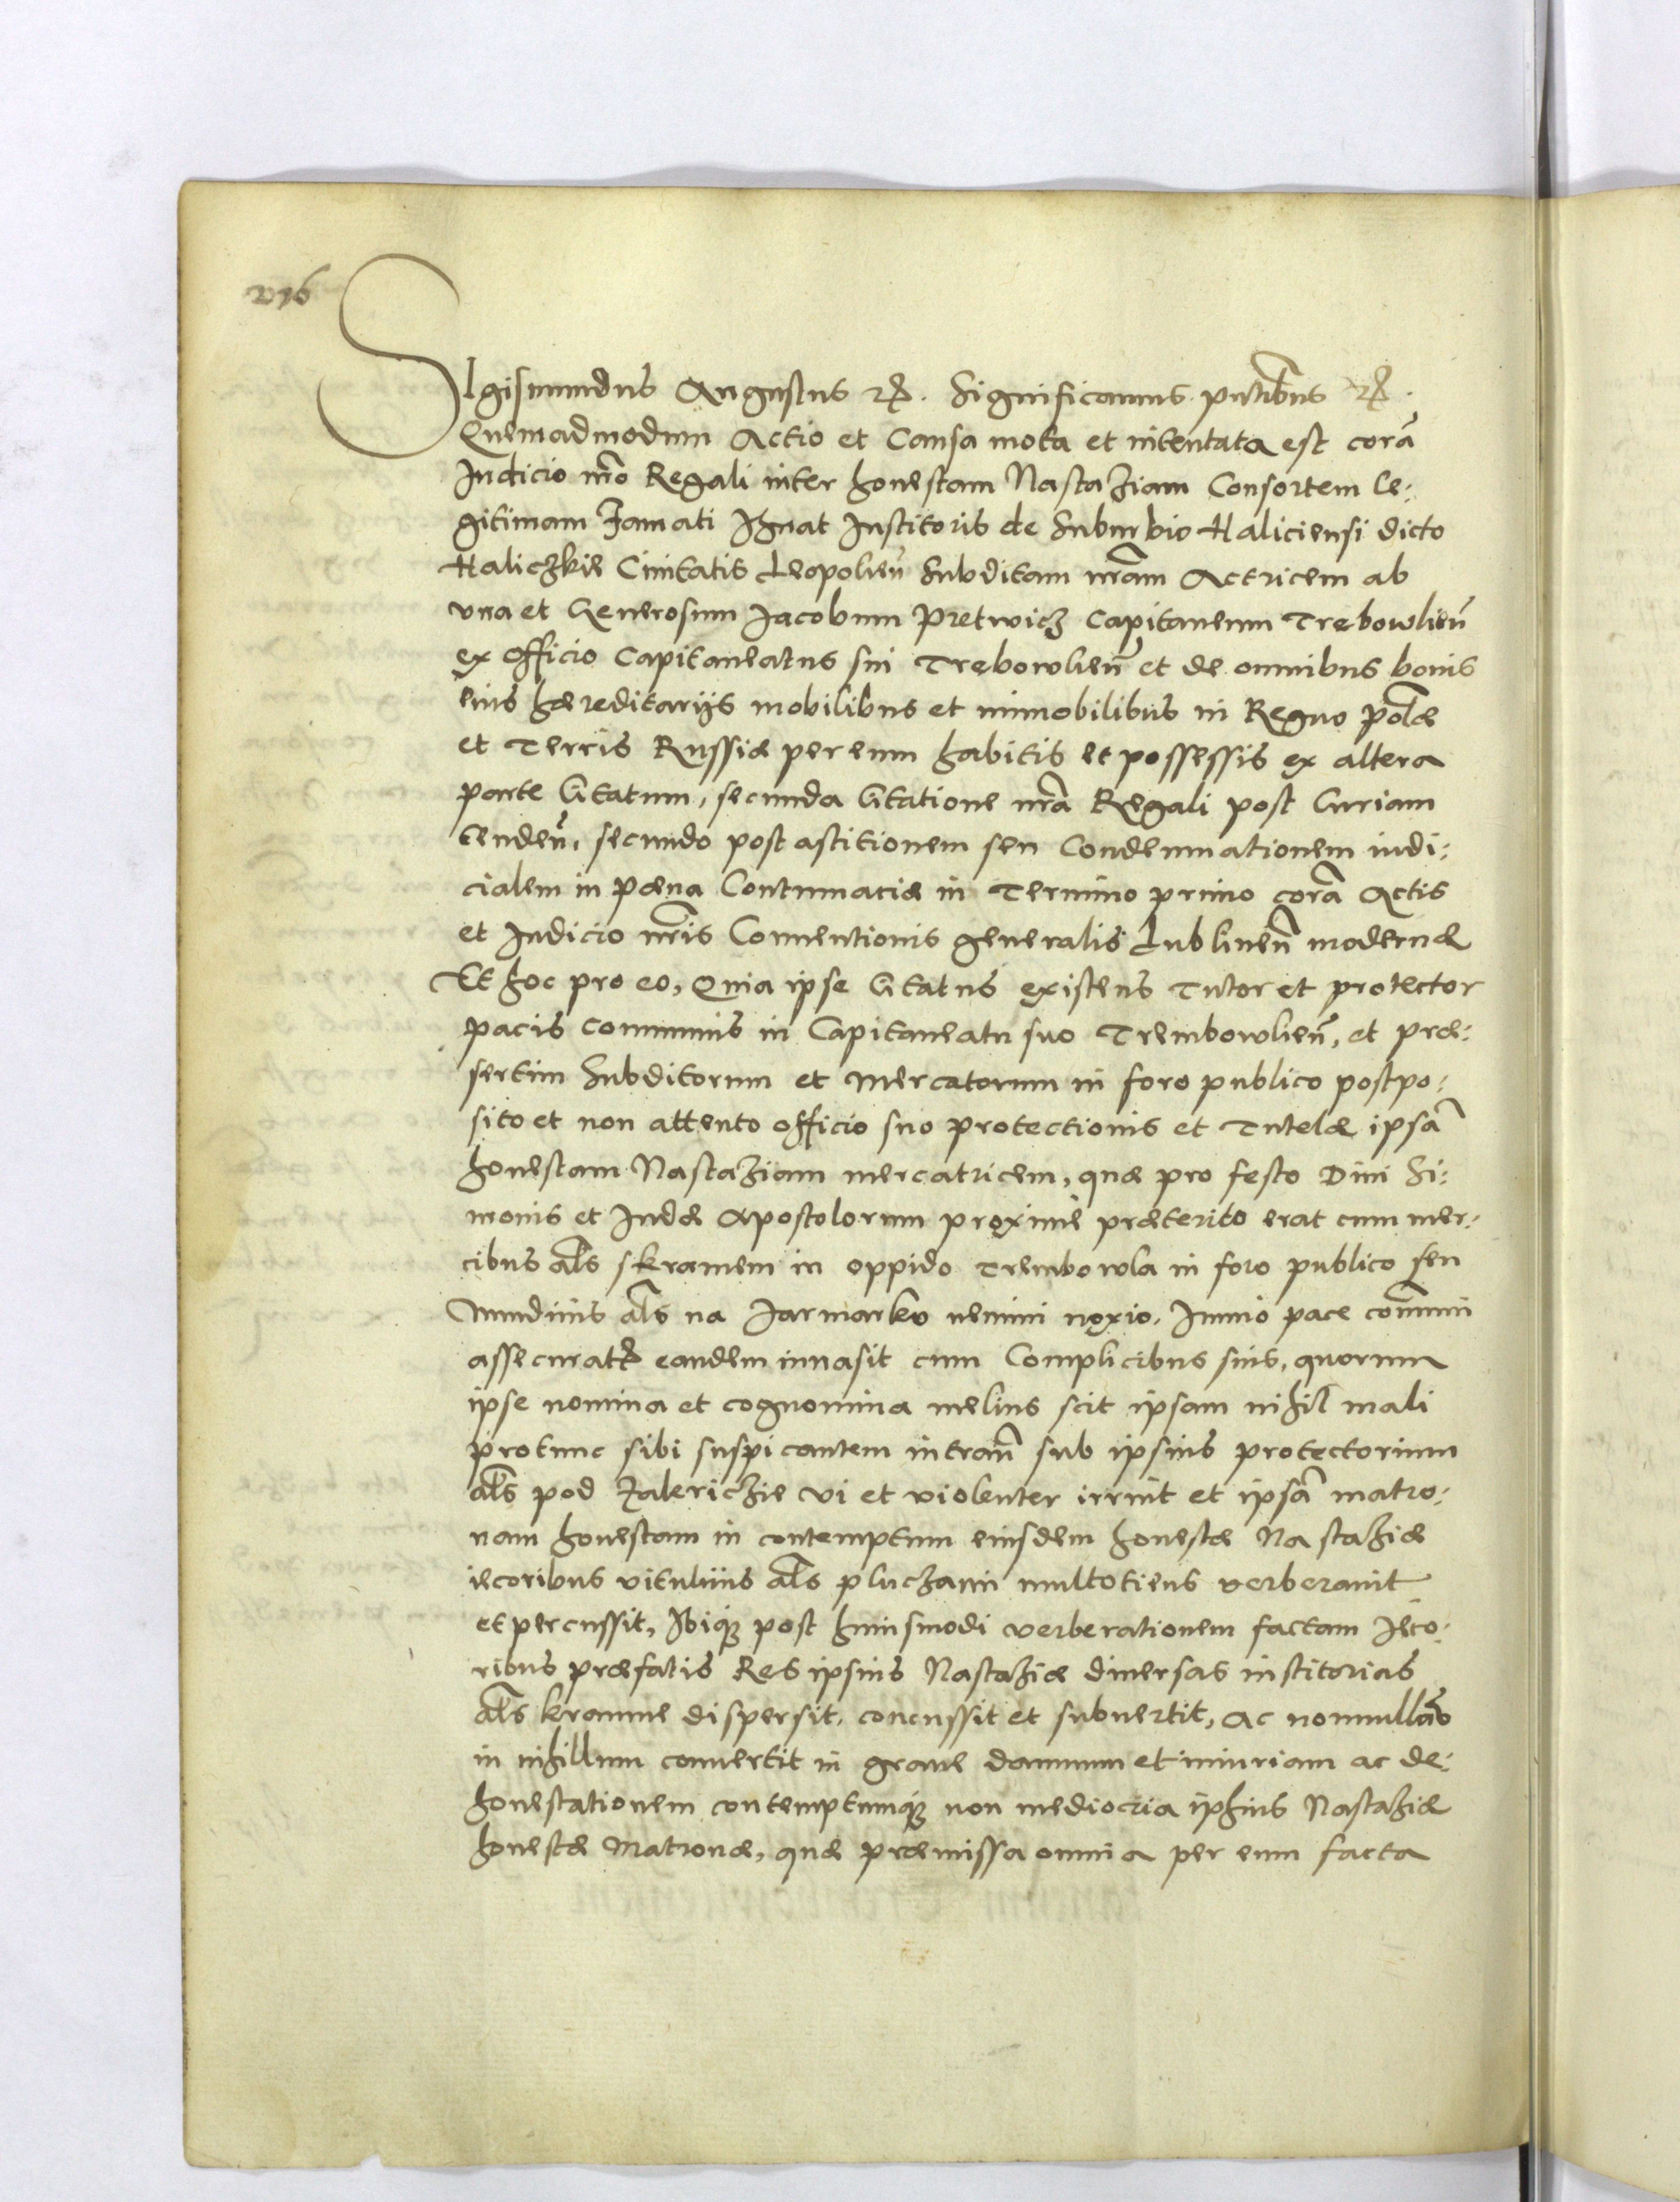 SIgismundus Augustus etc. Significamus pntibus etc.
Quemadmodum Actio et Causa mota et intentata est corã
Iudicio nro Regali inter honestam Nastaziam Consortem le:
gitimam Famati Ihnat Institoris de Suburbio Haliciensi dicto
Haliczkie Ciuitatis Leopolien̄ Subditam nrãm Actricem ab
vna et Generosum Iacobum Pretwicz Capitaneum Trebowlien̄
ex officio Capitaneatus sui Trebowlien̄ et de omnibus bonis
eius hæreditarijs mobilibus et immobilibus in Regno Polæ
et Terris Russiæ per eum habitis et possessis ex altera
parte Citatum, secunda Citatione nrã Regali post Curiam
tenden̄, secundo post astitionem seu Condemnationem iudi:
cialem in pæna Contumaciæ in Termino primo corã Actis
et Iudicio nris Conuentionis generalis Lublinen̄ modernæ
Et hoc pro eo, Quia ipse Citatus existens Tutor et protector
pacis communis in Capitaneatu suo Trembowlien̄, et præ:
sertim Subditorum et Mercatorum in foro publico postpo:
sito et non attento officio suo protectionis et Tutelæ ipsã
honestam Nastaziam mercatricem, quæ pro festo Diui Si:
monis et Iudæ Apostolorum proxime præterito erat cum mer:
cibus als skramem in oppido Trembowla in foro publico seu
Nundinis als na Iarmarko nemini noxio. Immo pace cōmuni
assecurat eandem inuasit cum Complicibus suis, quorum
ipse nomina et cognomina melius scit ipsam nihil mali
protunc sibi suspicantem intran̄ sub ipsius protectorium
als pod Zalericzie vi et violenter irruit et ipsã matro:
nam honestam in contemptum eiusdem honestæ Nastaziæ
iecoribus vitulinis als pluczami multotiens verberauit
et percussit, Ibiq3 post huiusmodi verberationem factam Ieco:
ribus præfatis Res ipsius Nastaziæ diuersas institorias
als kramne dispersit, concussit et subuertit, ac nonnullas
in nihillum conuertit in graue damnum et iniuriam ac de:
honestationem contemptumq3 non mediocria ipsius Nastaziæ
honestæ Matronæ, quæ præmissa omnia per eum facta